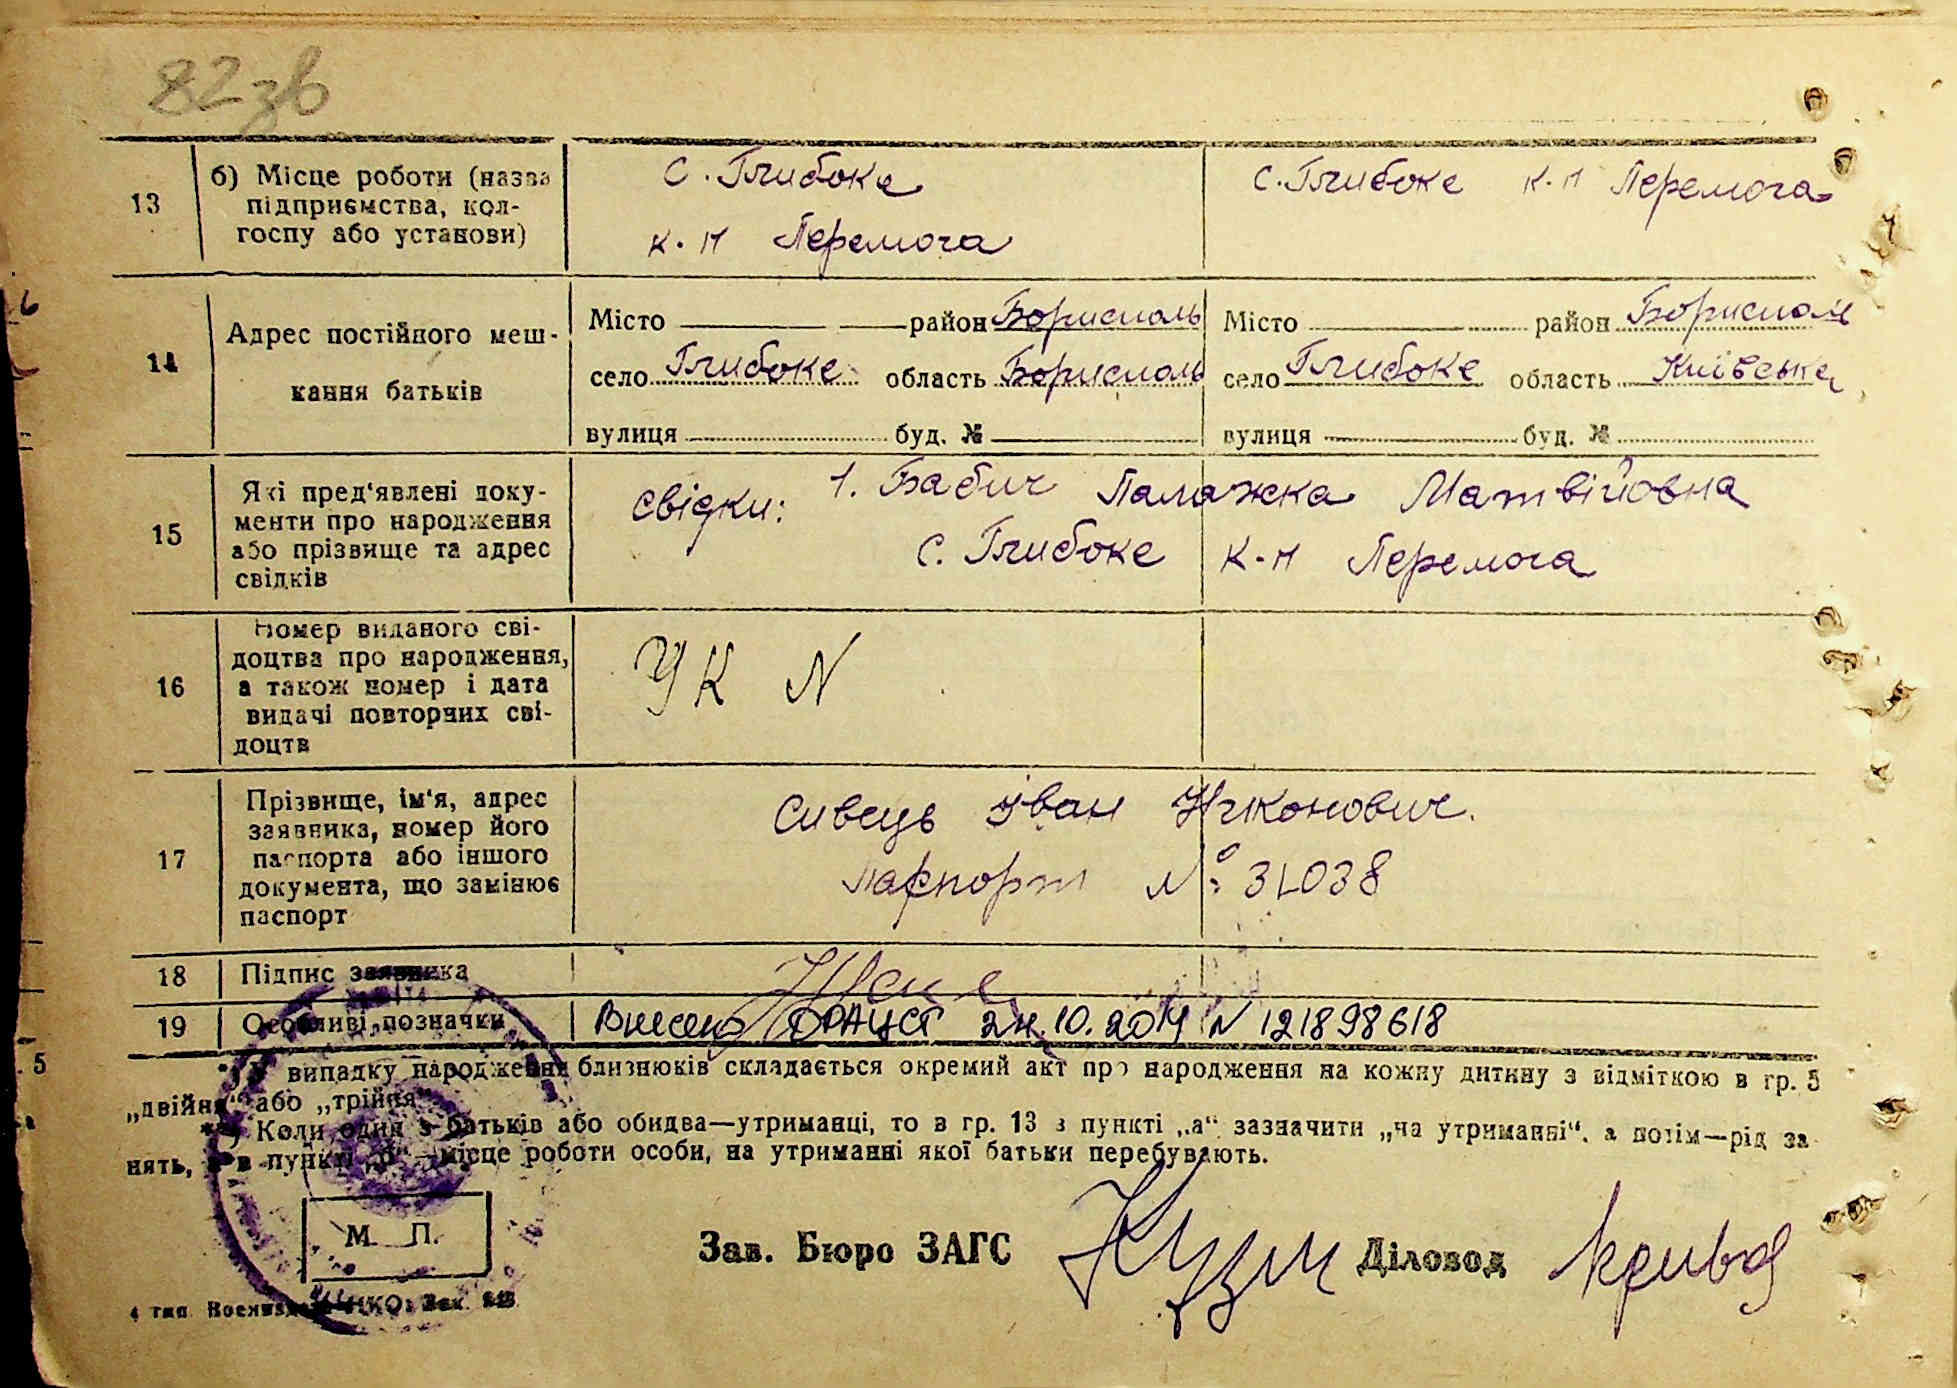 82зв
13
б) Місце роботи (назва
підприємства, кол-
госпу або установи)
С. Глибоке
к.п Перемога
с. Глибоке к.п Перемога
14
Адрес постійного меш-
кання батьків
Місто район Бориспаль
село Глибоке область Бориспаль
вулиця буд. №
Місто район Бориспаль
село Глибоке область Київська
вулиця буд. №
15
Які пред'явлені доку-
менти про народження
або прізвище та адрес
свідків
Свідки: 1. Бабич Палажка Матвійовна
с. Глибоке к-п Перемога
16
Номер виданого сві-
доцтва про народження,
а також номер і дата
видачі повторних сві-
доцтв
УК N
17
Прізвище, ім'я, адрес
заявника, номер його
паспорта або іншого
документа, що замінює
паспорт
Сивець Іван Никонович.
паспорт №: 31038
18 Підпис заявника
19 Особливі позначки Внесено ДРАЦСГ 24.10.2014 N 121898618
У випадку народження близнюків складається окремий акт про народження на кожну дитину з відміткою в гр. 5
„двійня“ або „трійня“
**) Коли один з батьків або обидва—утриманці, то в гр. 13 в пункті „а“ зазначити „на утриманні“, а потім—рід за
нять, а в пункті „б“—місце роботи особи, на утриманні якої батьки перебувають.
М. П.
Зав. Бюро ЗАГС Діловод
4 тип. НКО. Зак.
5